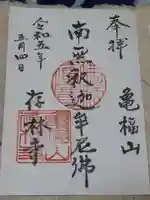 奉拝
亀福山
南無釈迦牟尼佛
令和五年
五月四日
存林寺